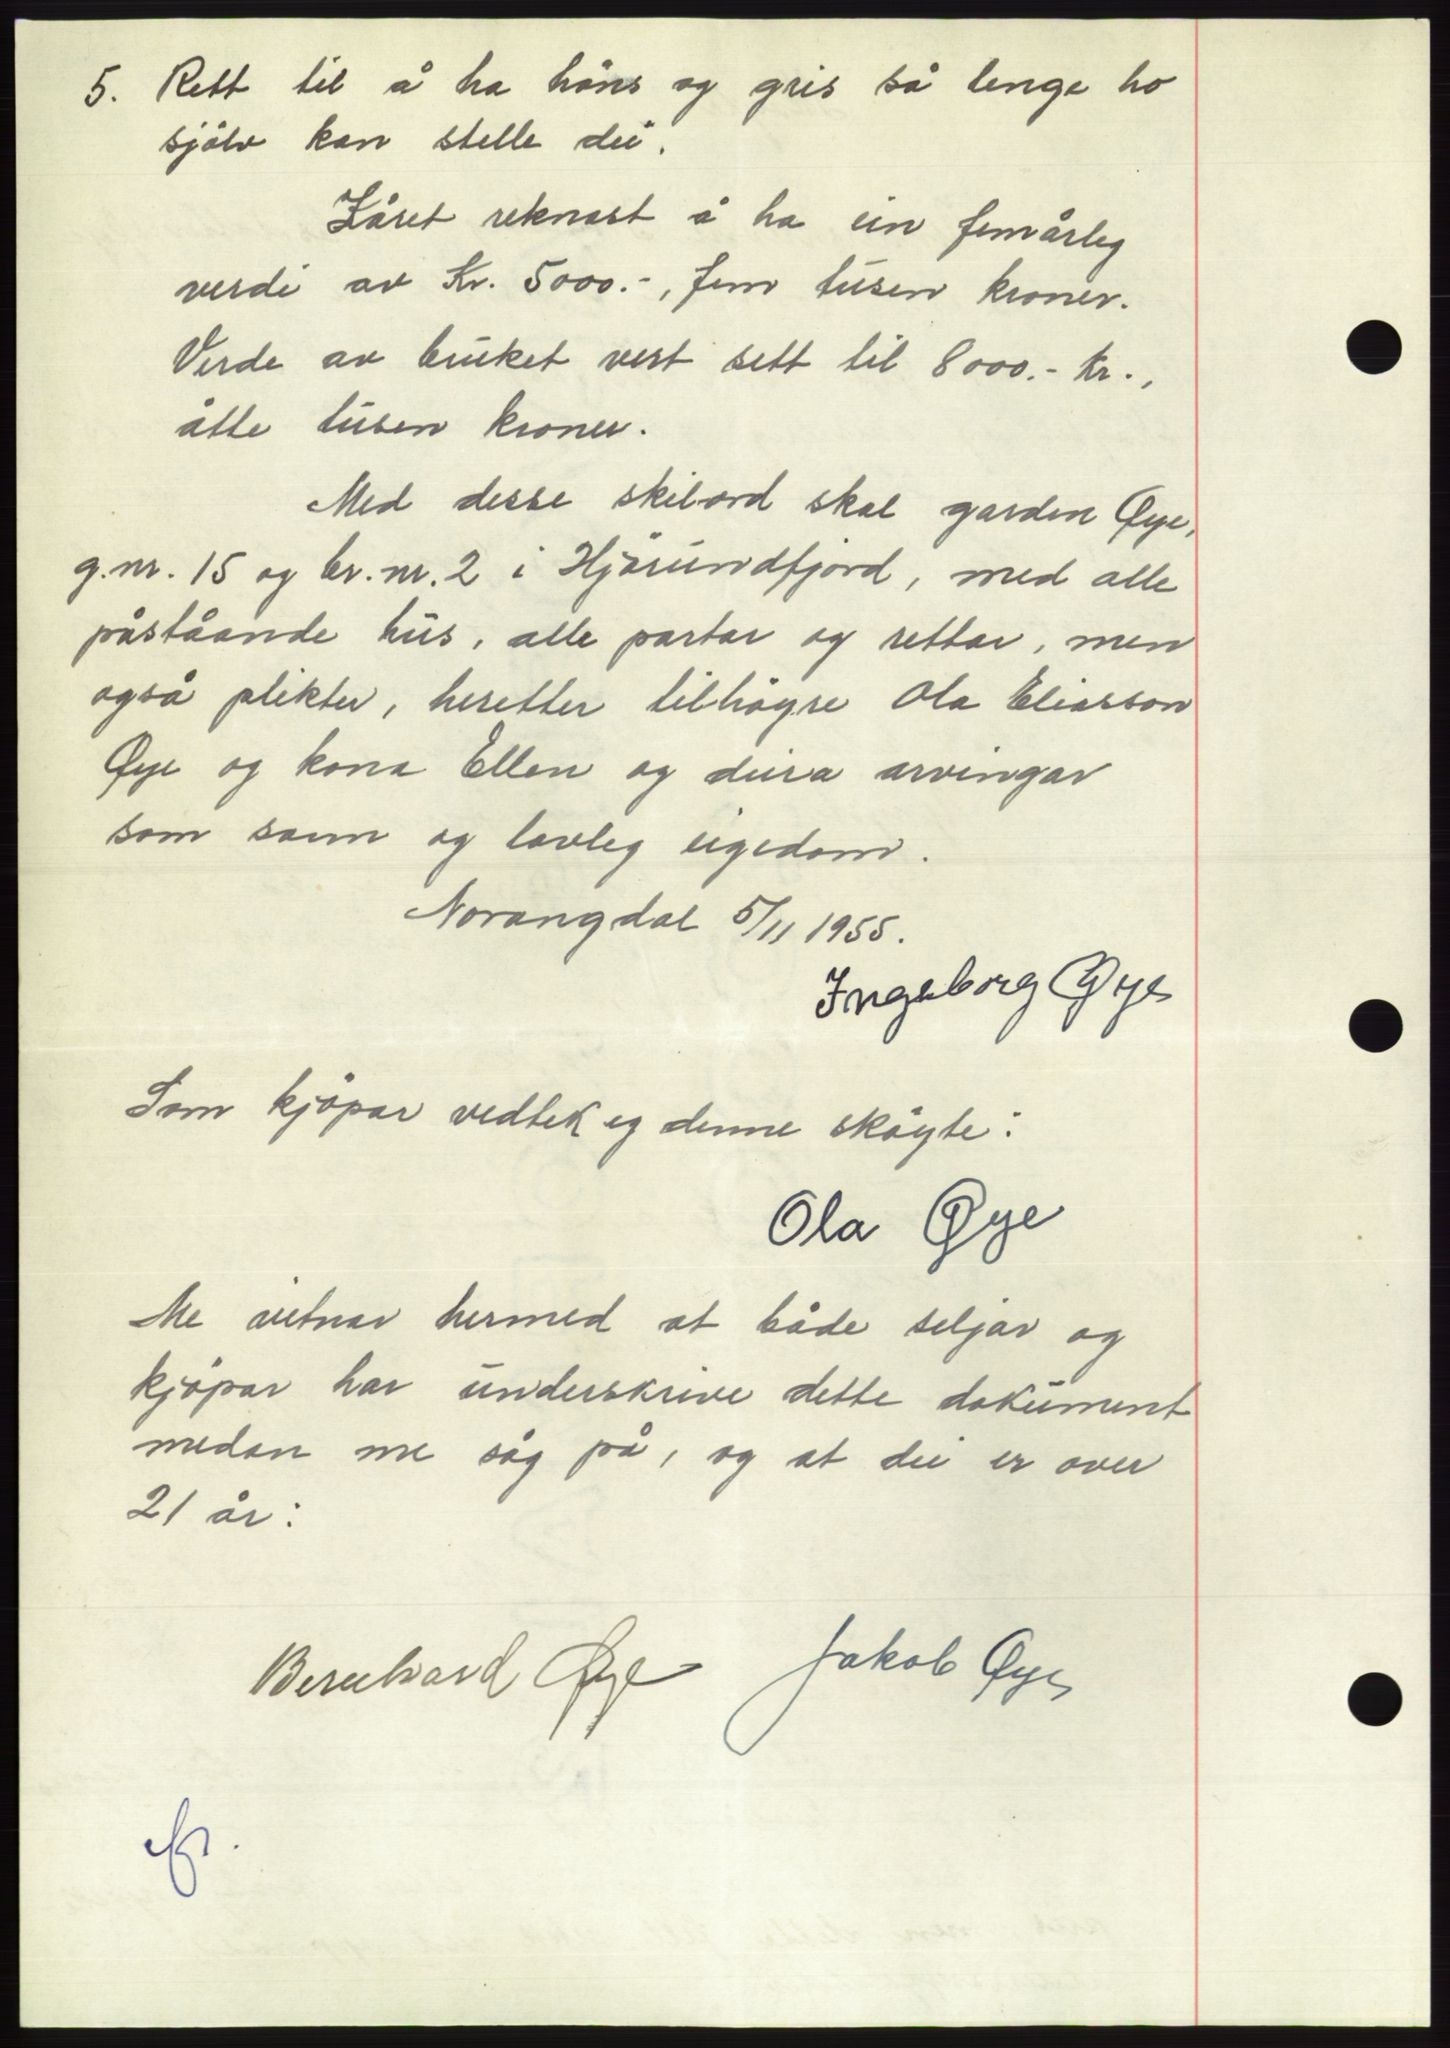 5. Rett til å ha høns og gris så lenge ho
sjølv kan stelle dei.
Kåret reknast å ha ein femårleg
verdi av Kr. 5000.-, fem tusen kroner.
Verde av bruket vert sett til 8000.- kr.,
åtte tusen kroner.
Med desse skilord skal garden Øye,
g.nr. 15 og br.nr. 2 i Hjørundfjord, med alle
påståande hus, alle partar og rettar, men
også plikter, heretter tilhøyre Ola Eliasson
Øye og kona Ellen og deira arvingar
som sann og lovleg eigedom.
Norangdal 5/11 1955.
Ingeborg Øye
Som kjøpar vedtek eg denne skøyte:
Ola Øye
Me vitnar hermed at både seljar og
kjøpar har underskrive dette dokument
medan me såg på, og at dei er over
21 år:
Bernhard Øye Jakob Øye